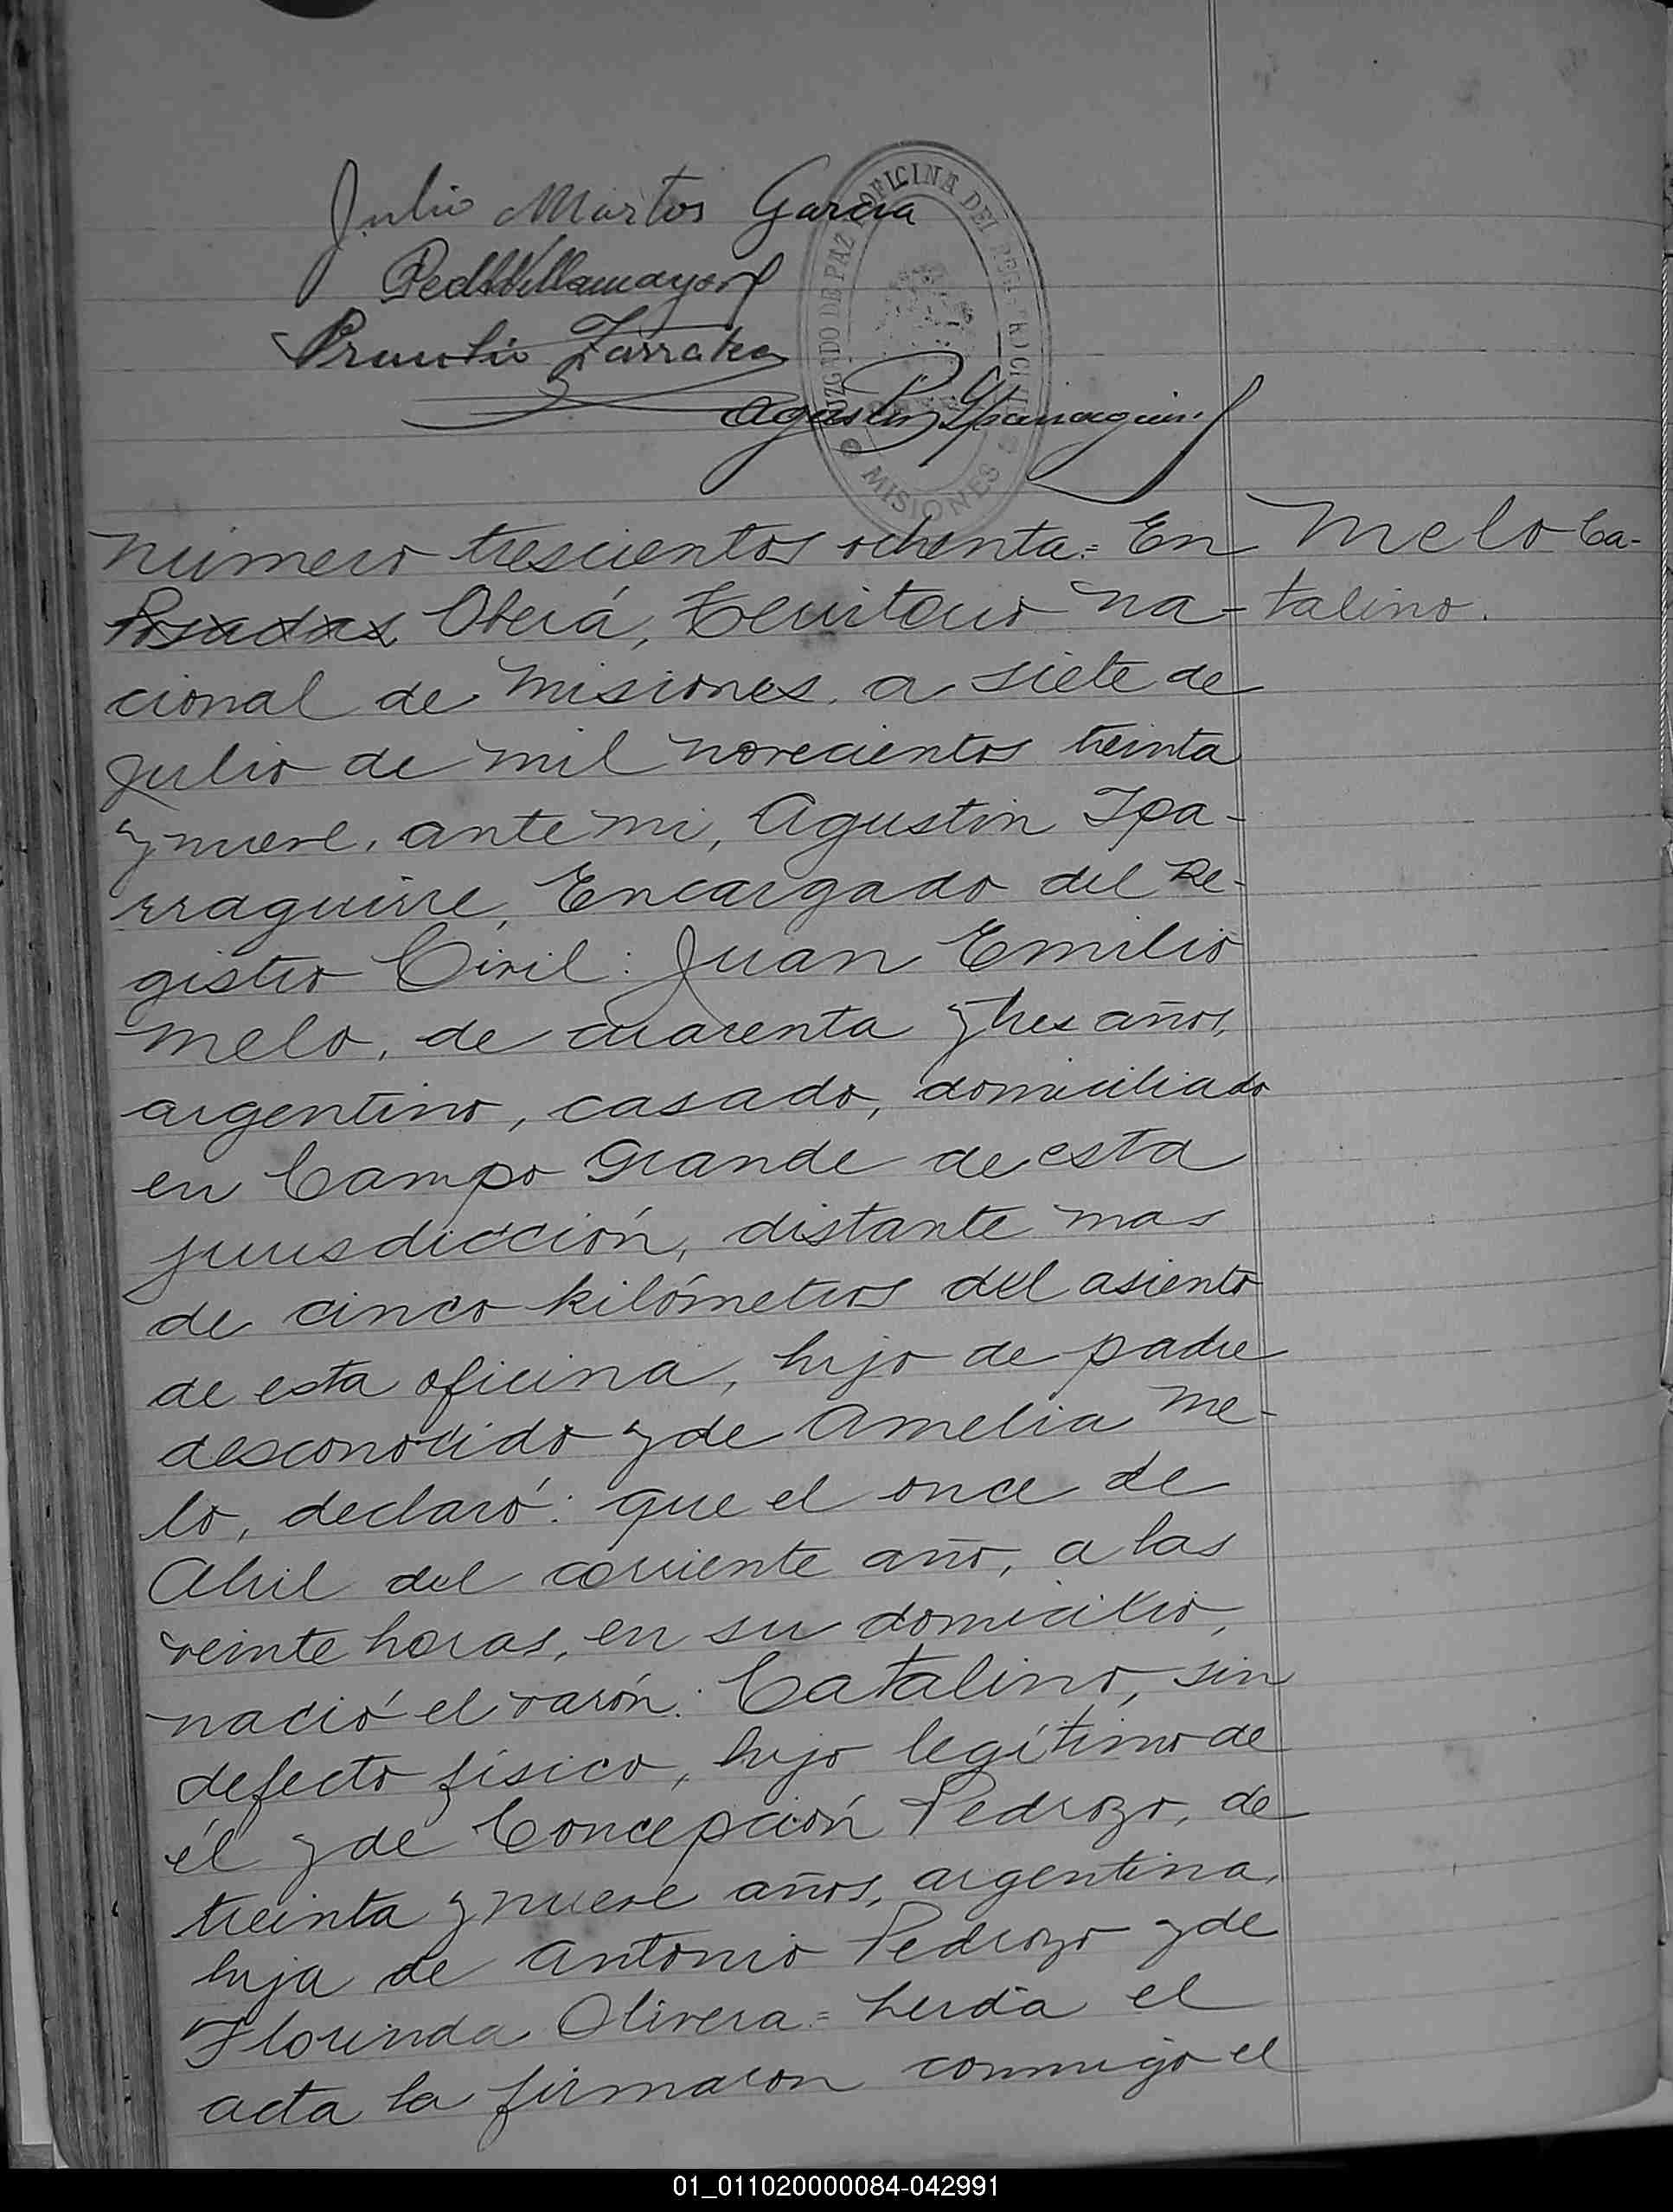 Julio Martos Garcia
Villamayor
Zarratea
OFICINA DEL REGISTRO CIVIL
JUZGADO DE PAZ
MISIONES
Agustin Iparraguirre
Número trescientos ochenta = En
Posadas Oberá, Territorio Na-
cional de Misiones, a siete de
Julio de mil novecientos treinta
y nueve, ante mi, Agustin Ipa-
rraguirre, Encargado del Re-
gistro Civil: Juan Emilio
Melo, de cuarenta y tres años,
argentino, casado, domiciliado
en Campo Grande de esta
jurisdicción, distante mas
de cinco kilómetros del asiento
de esta oficina, hijo de padre
desconocido y de Amelia Me-
lo, declaró: que el once de
Abril del corriente año, a las
veinte horas, en su domicilio,
nació el varón: Catalino, sin
defecto físico, hijo legítimo de
él y de Concepción Pedrozo, de
treinta y nueve años, argentina,
hija de Antonio Pedrozo y de
Florinda Olivera = Leida el
acta la firmaron conmigo el
Melo Ca-
talino.
01_011020000084-042991